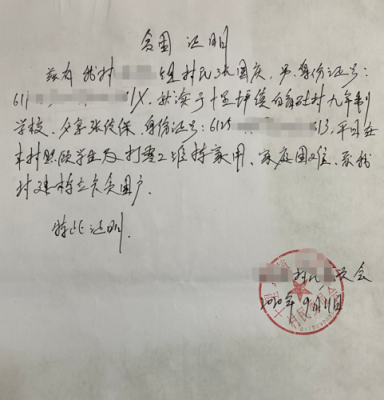 贫困证明
兹有我村 组村民张国庆,男,身份证号:
611 51X,就读于十里坪镇 村九年制
学校,父亲张传保,身份证号:6125 513,平日在
本村照顾学生及打零工维持家用,家庭困难,系我
村建档立卡贫困户
特此证明.
村民 委会
2020年9月11日